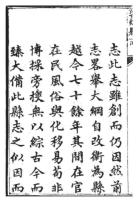 志此志雖創而仍因然前
志畧舉大綱自改衛為縣
越今七十餘年其間在官
在民風俗與化移易苟非
博採旁搜無以綜古今而
臻大備此縣志之似因而